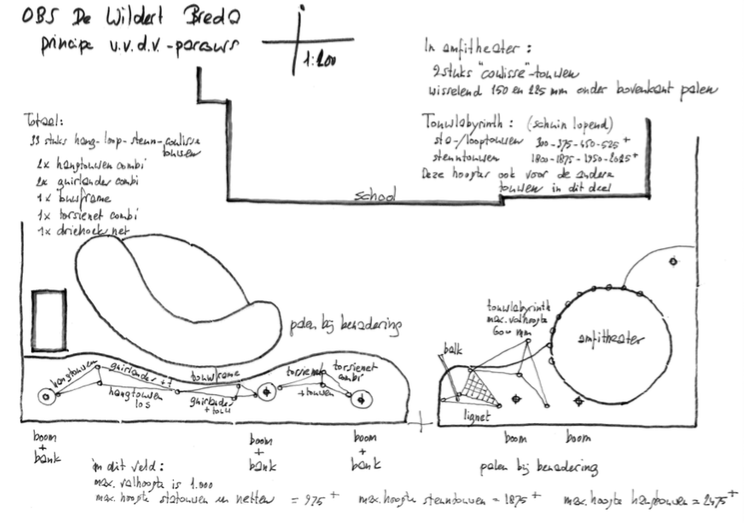 OBS De Wildert Breda
principe v.v.d.v.-parcours
1:200
In amfitheater:
2 stuks "coulisse"-touwen
wisselend 150 en 225 mm onder bovenkant palen
Totaal:
33 stuks hang-loop-steun-coulisse
touwen
2x hangtouwen combi
2x guirlander combi
1x touwframe
1x torsienet combi
1x driehoek net
Touwlabyrinth: (schuin lopend)
sta-/looptouwen 300-375-450-525+
steuntouwen 1800-1875-1950-2025+
Deze hoogtes ook voor de andere
touwen in dit deel
school
palen bij benadering
touwlabyrinth
max. valhoogte
600 mm
amfitheater
balk
lignet
hangtouwen
guirlander + t
hangtouwen
los
touwframe
guirlander
+ touw
torsienet
+ touwen
torsienet
combi
boom
+
bank
boom
+
bank
boom
+
bank
boom
boom
palen bij benadering
in dit veld:
max. valhoogte is 1.000
max. hoogte statouwen en netten = 975+
max. hoogte steuntouwen = 1875+
max. hoogte hangtouwen = 2475+